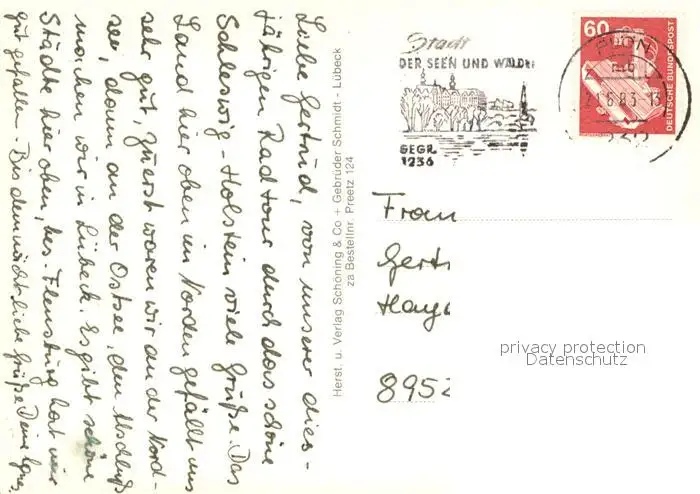 Liebe Gertrud, von unserer dies-
jährigen Radtour durch das schöne
Schleswig-Holstein viele Grüße. Das
Land hier oben im Norden gefällt uns
sehr gut, zuerst waren wir an der Nord-
see, dann an der Ostsee, den Abschluß
machen wir in Lübeck. Es gibt schöne
Städte hier oben, bes. Flensburg hat mir
gut gefallen. Bis demnächst liebe Grüße Deine Agnes
Herst. u. Verlag Schöning & Co + Gebrüder Schmidt - Lübeck
za Bestellnr. Preetz 124
Stadt
DER SEEN UND WÄLDER
GEGR.
1236
PLÖN
60
DEUTSCHE BUNDESPOST
Frau
Gert
Hay
895
privacy protection
Datenschutz